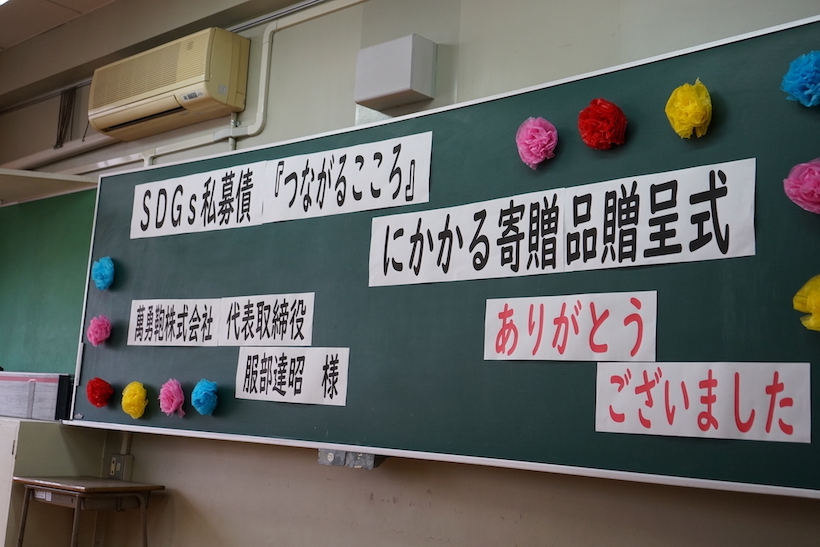 SDGs私募債『つながるこころ』
にかかる寄贈品贈呈式
萬勇鞄株式会社 代表取締役
服部達昭 様
ありがとう
ございました